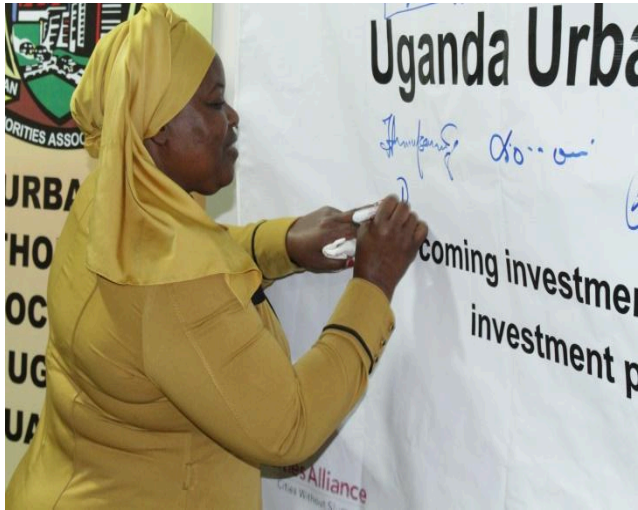 AN
ORITIES ASSOC
URBA
THO
OC
UG
UA
Uganda Urba
coming investmen
investment p
esAlliance
Cities Without S